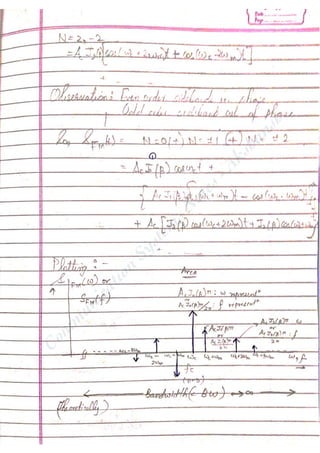 N = 2, -2
= Ac J2(β) [cos(ωc + 2ωm)t + cos(ωc - 2ωm)t]
Observation: Even order sideband in phase
Odd order sideband out of phase
SFM(t) = N=0 (+) N=±1 (+) N=±2
= Ac J0(β) cosωct +
{ Ac J1(β) cos(ωc + ωm)t - cos(ωc - ωm)t }
+ Ac [J2(β) cos(ωc + 2ωm)t + J2(β) cos(ωc
Plotting :-
SFM(ω) or
SFM(f)
Area
Ac J0(β)π : ω represent
Ac J0(β)π/2π : f represent
Ac J1(β)π
or
Ac J1(β)π
2π
Ac J2(β)π ω
or
Ac J2(β)π : f
2π
ωc ωc+ωm ωc+2ωm ω, f
fc
(n=0)
Bandwidth (BW) → ∞
(theoretically)